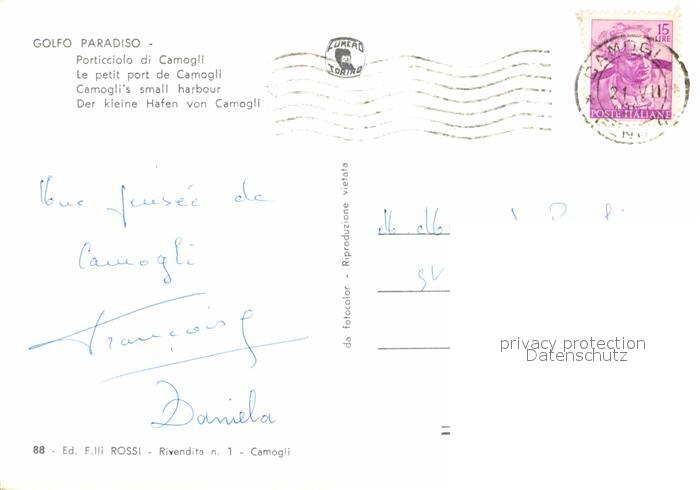 GOLFO PARADISO -
Porticciolo di Camogli
Le petit port de Camogli
Camogli's small harbour
Der kleine Hafen von Camogli
LUMERO
TORINO
15
LIRE
CAMOGLI
21 VII
POSTE ITALIANE
Une pensée de
Camogli
François
Daniela
da fotocolor - Riproduzione vietata
privacy protection
Datenschutz
88 - Ed. F.lli ROSSI - Rivendita n. 1 - Camogli